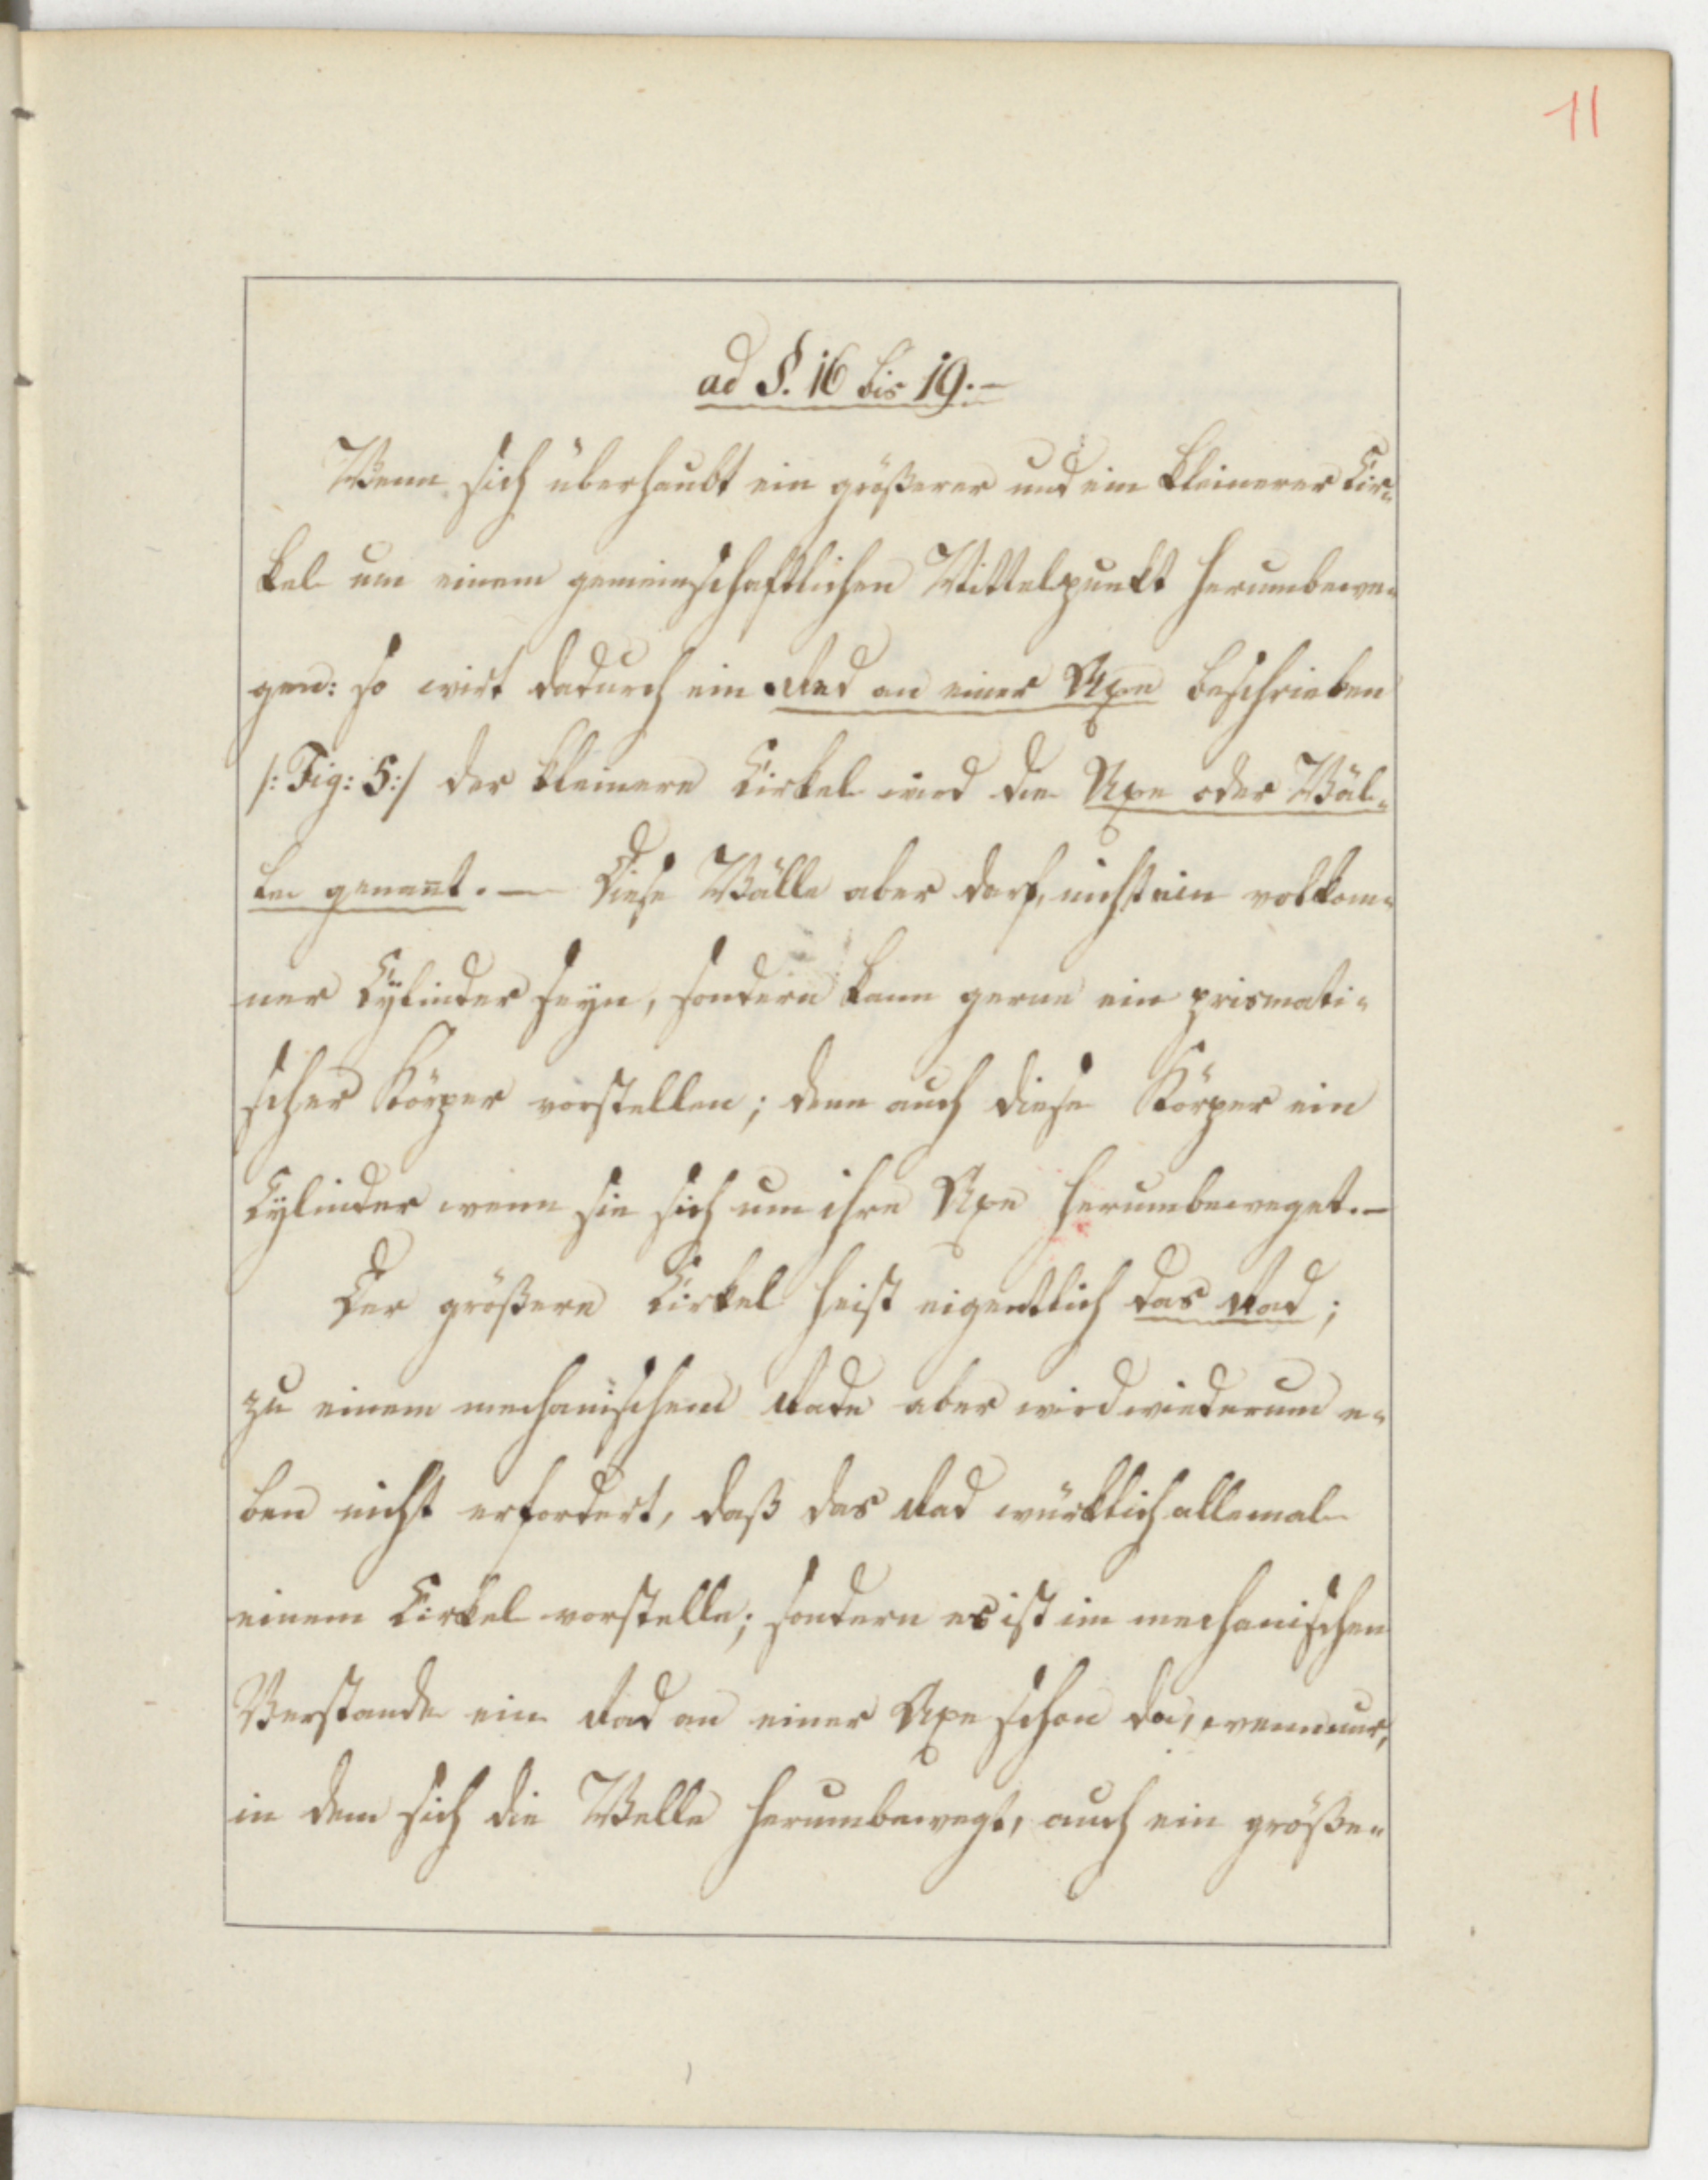 11
ad §. 16 bis 19.-
Wenn sich überhaubt ein größerer und ein kleinerer Cir-
kel um einem gemeinschaftlichen Mittelpunkt herumbewe-
gen: so wirt dadurch ein Rad an einer Axe beschrieben
/: Fig: 5:/ der kleinere Cirkel wird die Axe oder Wäl-
le genañt. — Diese Wälle aber darf, nicht ein volkom-
ner Cÿlinder seyn, sondern kann gerne ein prismati-
scher Körper vorstellen; denn auch diese Körper ein
Cylinder wenn sie sich um ihre Axe herumbeweget.-
Der größere Cirkel heist eigentlich das Rad;
zu einem mechanischem Rade aber wird wiederum e-
ben nicht erfordert, daß das Rad würklich allemal
einem Cirkel vorstelle; sondern es ist im mechanischen
Verstande ein Rad an einer Axe schon da, wenn nur,
in dem sich die Welle herumbewegt, auch ein größe-